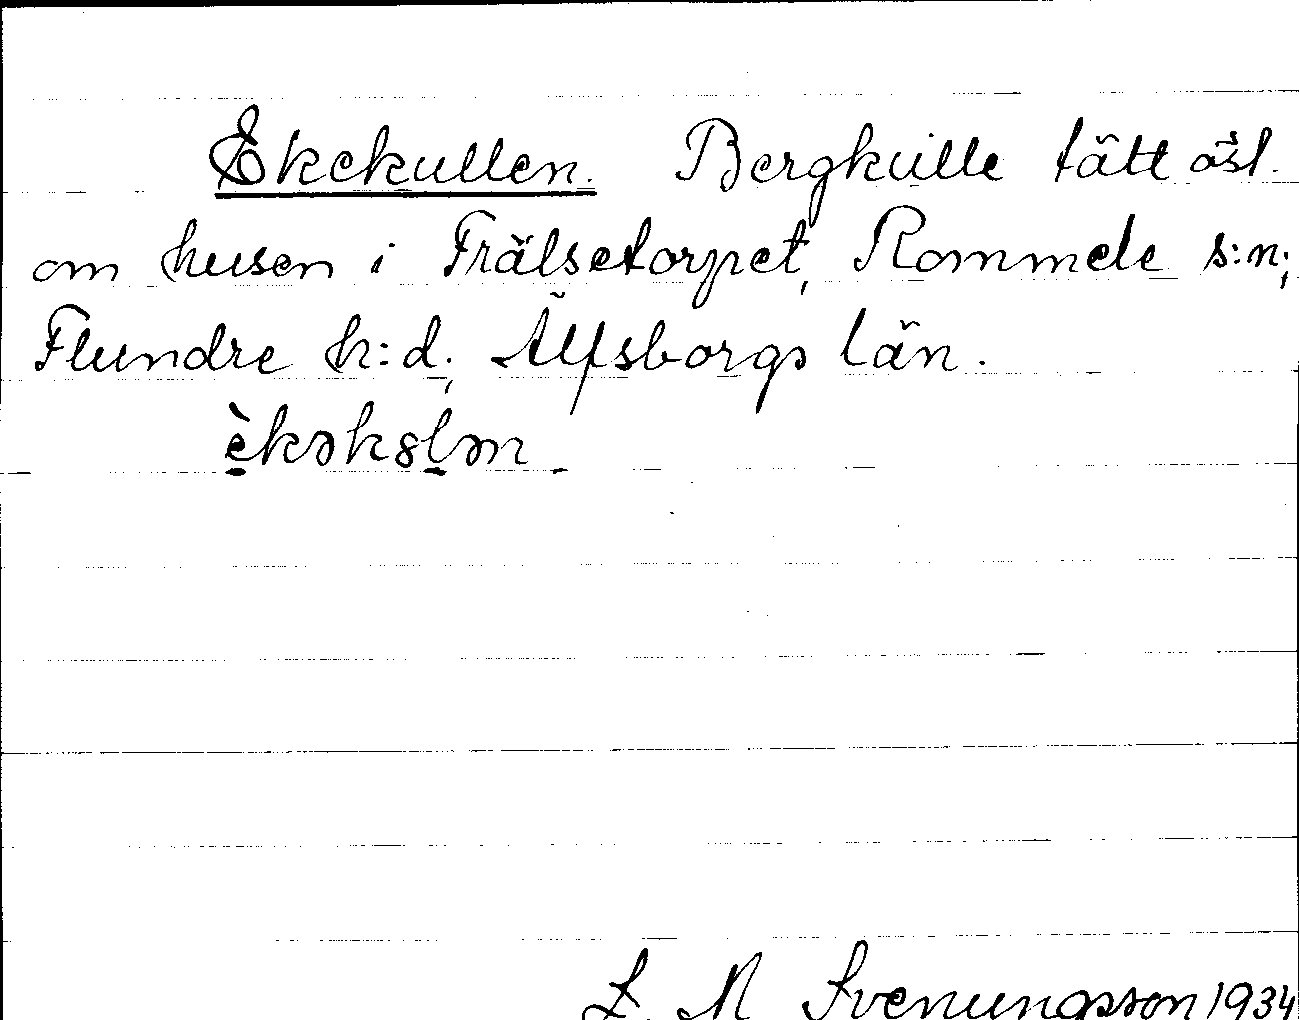 Ekekullen. Bergkulle tätt öst.
om husen i Frälsetorpet, Rommele s:n;
Flundre h:d; Älfsborgs län.
èkəkꞷlən
S. M Svenungsson 1934